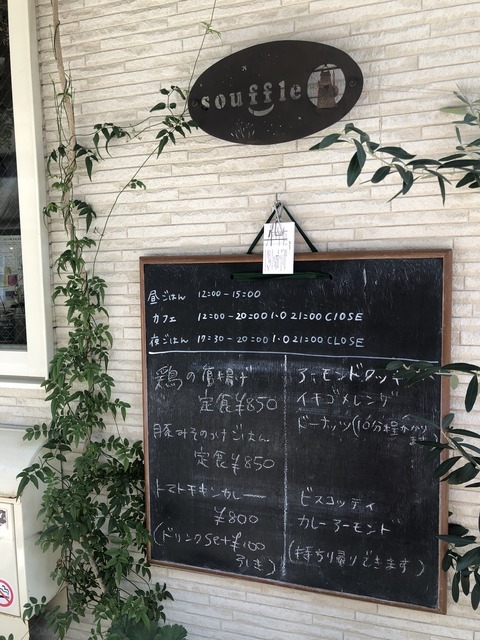 souffle
昼ごはん 12:00-15:00
カフェ 12:00-20:00 l.o 21:00 CLOSE
夜ごはん 17:30-20:00 l.o 21:00 CLOSE
鶏の唐揚げ
定食¥850
豚みそのっけごはん
定食¥850
トマトチキンカレー
¥800
(ドリンクSet ¥100
引き)
アーモンドクッキー
イチゴメレンゲ
ドーナッツ(10分程かかり
ます)
ビスコッティ
カレーアーモンド
(持ち帰りできます)